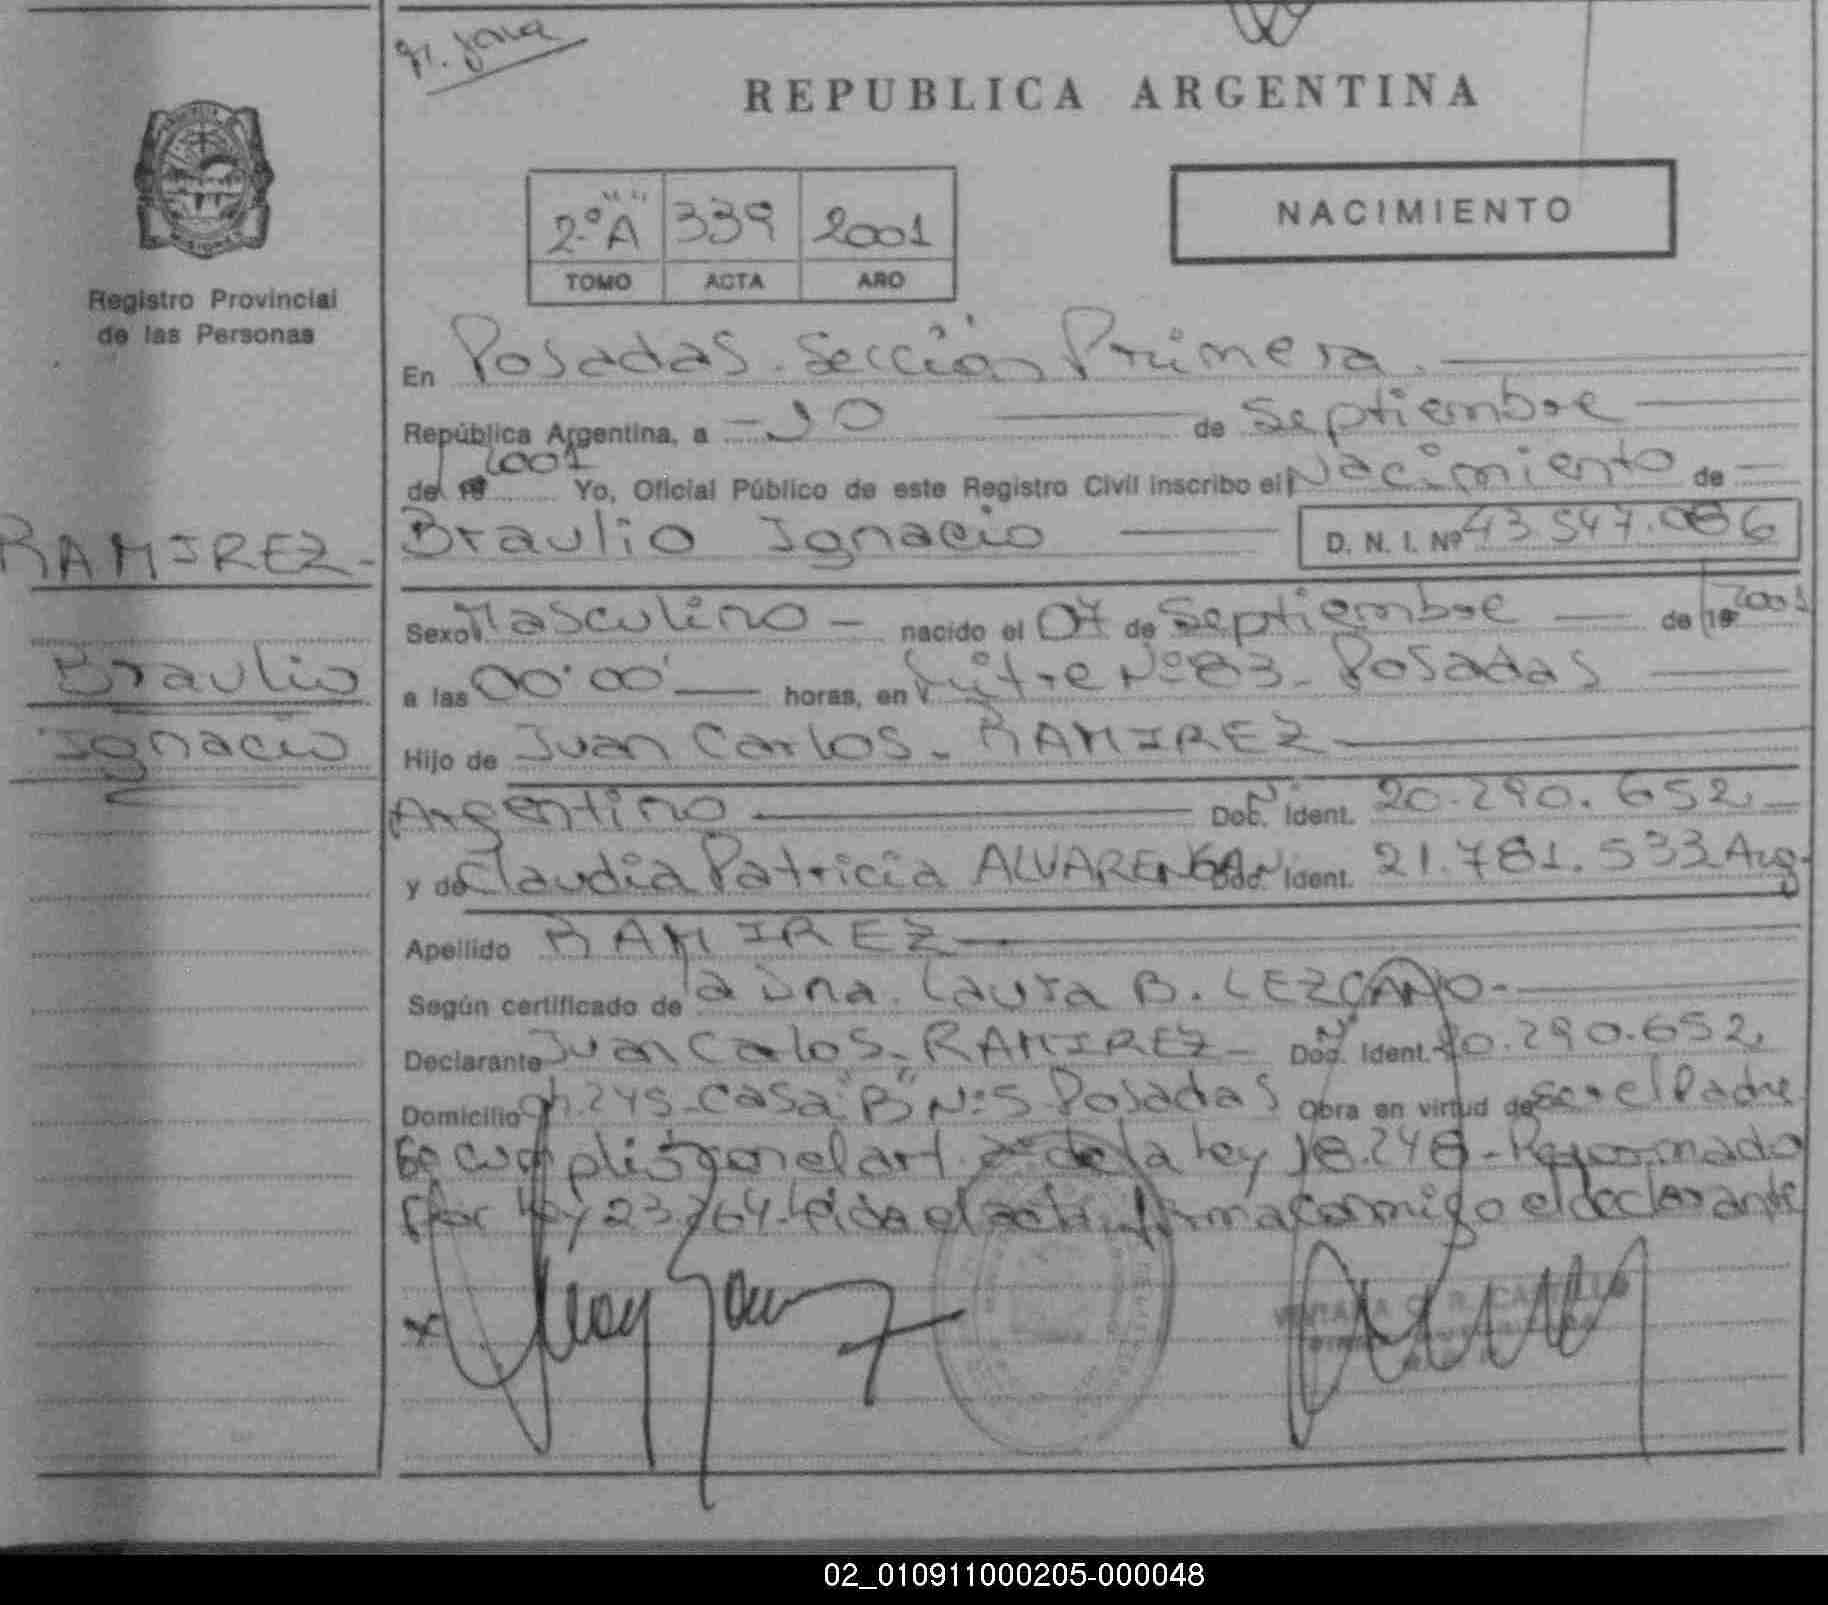 REPUBLICA ARGENTINA
2.º "A" 339 2001
TOMO ACTA AÑO
NACIMIENTO
Registro Provincial
de las Personas
En Posadas. Sección Primera.
República Argentina, a - 10 de Septiembre
de 2001 Yo, Oficial Público de este Registro Civil inscribo el Nacimiento de
RAMIREZ -
Braulio Ignacio D. N. I. Nº 43.547.086
Sexo Masculino - nacido el 07 de Septiembre de 2001
Braulio
a las 00:00 horas, en Mitre Nº 83 - Posadas
Ignacio
Hijo de Juan Carlos - RAMIREZ
Argentino Doc. Ident. 20.290.652
y de Claudia Patricia ALVARENGA Doc. Ident. 21.781.533 Arg.
Apellido RAMIREZ
Según certificado de la Dra. Laura B. LEZCANO -
Declarante Juan Carlos - RAMIREZ - Doc. Ident. 20.290.652
Domicilio Ch. 245 - Casa "B" Nº 5 Posadas Obra en virtud de ser el Padre
Se cumplió con el art. 2º de la Ley 18.248 - Reformado
por Ley 23.264 - Leída el acta firma conmigo el declarante
x
02_010911000205-000048